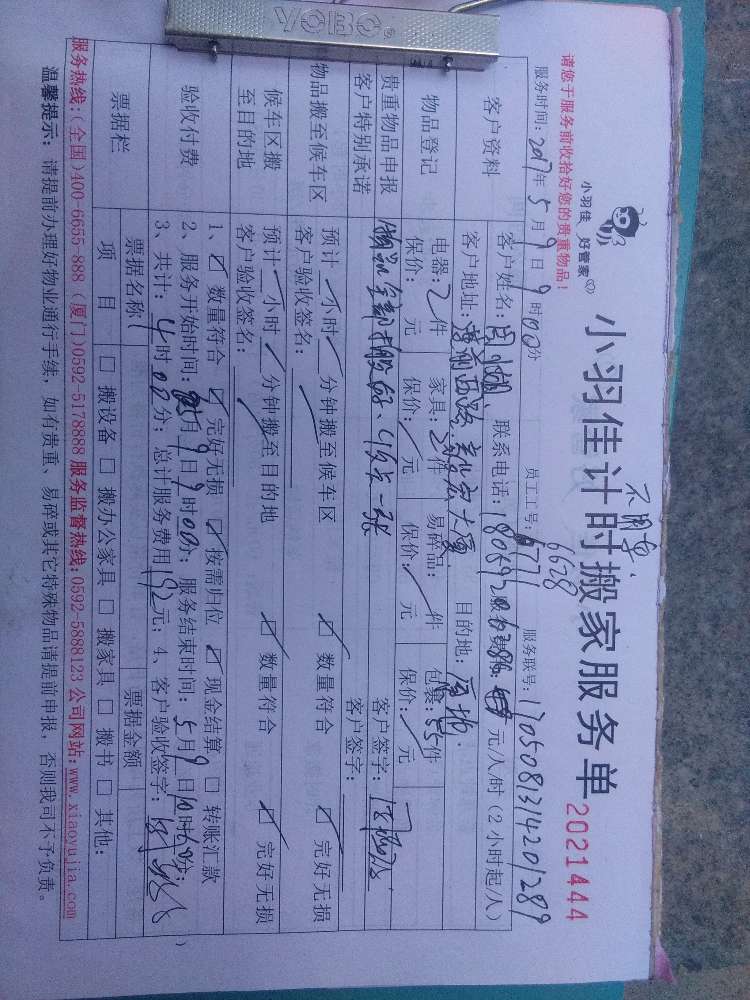 VOBC
请您于服务前收拾好您的贵重物品!
小羽佳 好管家
不用车
小羽佳计时搬家服务单 2021444
6628
服务时间: 2017年5月9日9时00分 员工工号: 服务联号: 1705081314201289
客户资料
客户姓名: 联系电话: 元/人时(2小时起/人)
客户地址: 目的地:
物品登记
电器: 2件 家具: 2件 易碎品: 件 包裹: 55件
保价: 元 保价: 元 保价: 元 保价: 元
贵重物品申报
客户特别承诺
客户签字:
客户签字:
物品搬至候车区
预计 小时 分钟搬至候车区 数量符合 完好无损
客户验收签名:
候车区搬至目的地
预计 小时 分钟搬至目的地 数量符合 完好无损
客户验收签名:
验收付费
1、☑ 数量符合 ☑ 完好无损 ☑ 按需归位 ☑ 现金结算 □ 转账汇款
2、服务开始时间: 月9日9时00分; 服务结束时间: 5月9日10时 分;
3、共计: 4时00分; 总计服务费用192元; 4、客户验收签字:
票据栏
票据名称 票据金额
项目 □ 搬设备 □ 搬办公家具 □ 搬家具 □ 搬书 □ 其他:
服务热线:(全国)400-6655 888 (厦门)0592-5178888 服务监督热线:0592-5888123 公司网站:www.xiaoyujia.com
温馨提示: 请提前办理好物业通行手续, 如有贵重、易碎或其它特殊物品请提前申报, 否则我司不予负责。